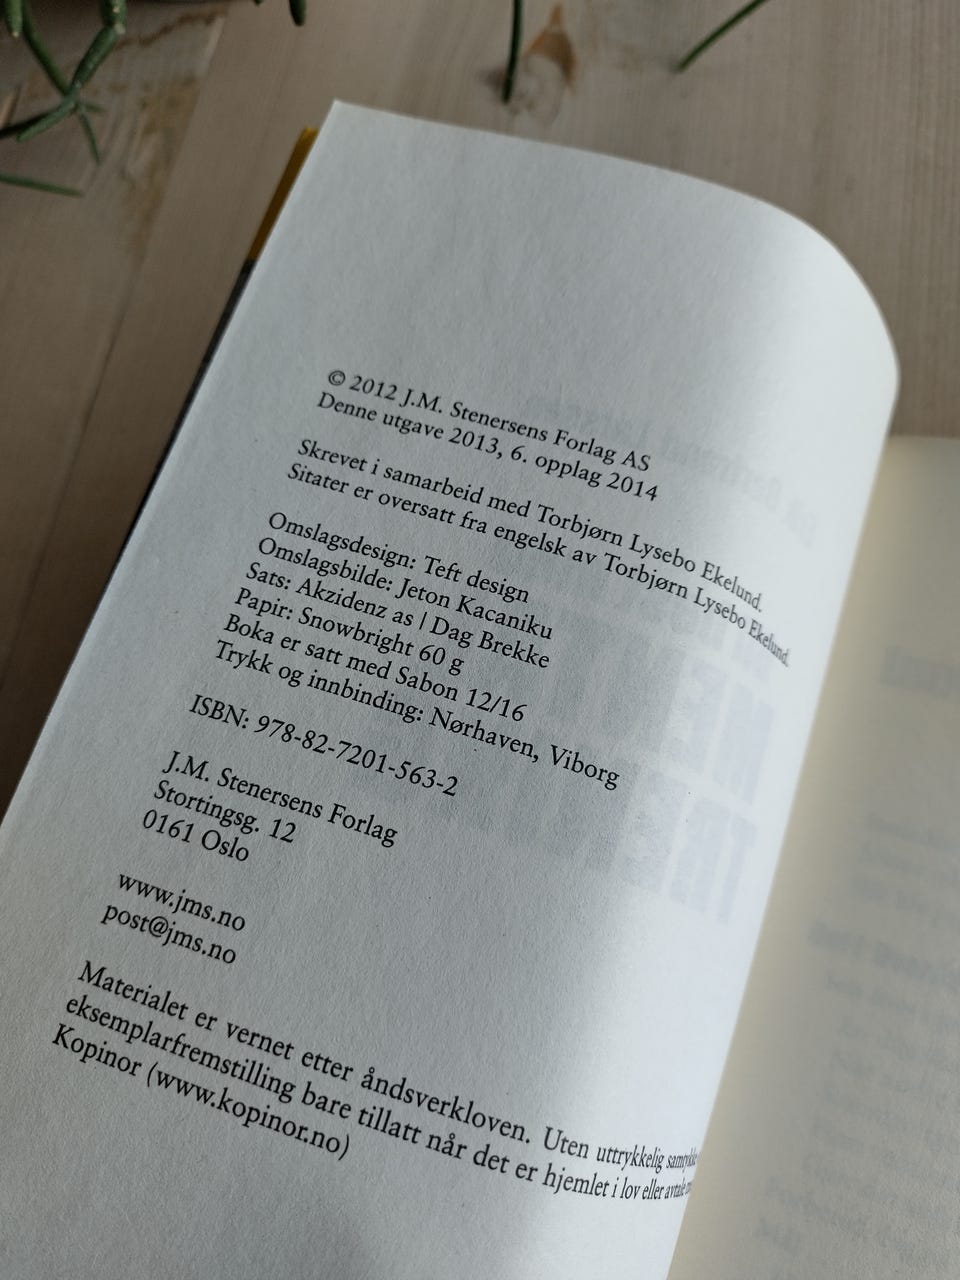 © 2012 J.M. Stenersens Forlag AS
Denne utgave 2013, 6. opplag 2014
Skrevet i samarbeid med Torbjørn Lysebo Ekelund.
Sitater er oversatt fra engelsk av Torbjørn Lysebo Ekelund.
Omslagsdesign: Teft design
Omslagsbilde: Jeton Kacaniku
Sats: Akzidenz as | Dag Brekke
Papir: Snowbright 60 g
Boka er satt med Sabon 12/16
Trykk og innbinding: Nørhaven, Viborg
ISBN: 978-82-7201-563-2
J.M. Stenersens Forlag
Stortingsg. 12
0161 Oslo
www.jms.no
post@jms.no
Materialet er vernet etter åndsverkloven. Uten uttrykkelig samtykke
eksemplarfremstilling bare tillatt når det er hjemlet i lov eller avtale
Kopinor (www.kopinor.no)